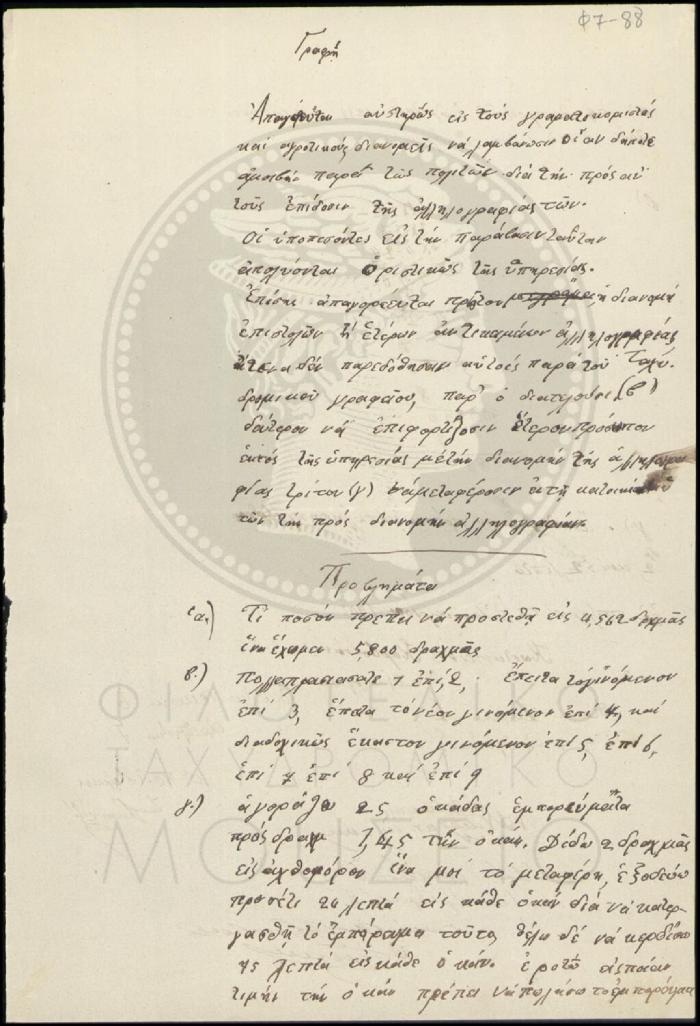 Φ7-88
Γραφή
Ἀπαγορεύεται αὐστηρῶς εἰς τούς γραματοκομιστάς
καί ἀγροτικούς διανομεῖς νά λαμβάνωσιν οἵαν δήποτε
ἀμοιβήν παρά τῶν πολιτῶν διά τήν πρός αὐ
τούς ἐπίδοσιν τῆς ἀλληλογραφίας των.
Οἱ ὑποπεσόντες εἰς τήν παράβασιν ταύτην
ἀπολύονται ὁριστικῶς τῆς ὑπηρεσίας.
Ἐπίσης ἀπαγορεύεται πρῶτον ἡ διανομή
ἐπιστολῶν ἤ ἑτέρων ἀντικειμένων ἀλληλογραφίας
ἅτινα δέν παρεδόθησαν αὐτοῖς παρά τοῦ Ταχυ
δρομικοῦ γραφείου, παρ' ὁ διατελοῦσι (β)
δεύτερον νά ἐπιφορτίζωσιν ἕτερον πρόσωπον
ἐκτός τῆς ὑπηρεσίας μέ τήν διανομήν τῆς ἀλληλογρα
φίας τρίτον (γ) νά μεταφέρωσιν
των τήν πρός διανομήν ἀλληλογραφίαν
Προβλήματα
α.) Τι ποσόν πρέπει νά προστεθῆ εἰς 4,562 δραχμάς
ἵνα ἔχωμεν 5,800 δραχμάς
β.) Πολλαπλασιάσατε 1 ἐπί 2, ἔπειτα τό γινόμενον
ἐπί 3, ἔπειτα τό νέον γινόμενον ἐπί 4, καί
διαδοχικῶς ἕκαστον γινόμενον ἐπί 5, ἐπί 6,
ἐπί 7 ἐπί 8 καί ἐπί 9
γ.) ἀγοράζω 25 ὀκάδας ἐμπορεύματα
πρός δραχμ 1,45 τήν ὀκάν. Δίδω 2 δραχμάς
εἰς ἀχθοφόρον ἵνα μοί τό μεταφέρη, ἐξοδεύω
προσέτι 20 λεπτά εἰς κάθε ὀκάν διά νά κατερ
γασθῆ τό ἐμπόρευμα τοῦτο, θέλω δέ νά κερδίσω
λεπτά εἰς κάθε ὀκάν. ἐρωτῶ εἰς ποίαν
τιμήν τήν ὀκάν πρέπει νά πωλήσω τό ἐμπόρευμα
ΦΙΛΟΤΕΛΙΚΟ
ΤΑΧΥΔΡΟΜΙΚΟ
ΜΟΥΣΕΙΟ